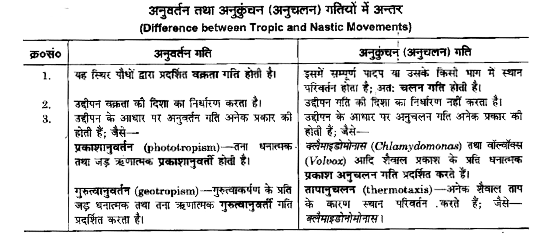 अनुवर्तन तथा अनुकुंचन (अनुचलन) गतियों में अन्तर
(Difference between Tropic and Nastic Movements)
क्र०सं० अनुवर्तन गति अनुकुंचन (अनुचलन) गति
1. यह स्थिर पौधों द्वारा प्रदर्शित वक्रता गति होती है।
इसमें सम्पूर्ण पादप या उसके किसी भाग में स्थान
परिवर्तन होता है; अतः चलन गति होती है।
2. उद्दीपन वक्रता की दिशा का निर्धारण करता है।
उद्दीपन गति की दिशा का निर्धारण नहीं करता है।
3. उद्दीपन के आधार पर अनुवर्तन गति अनेक प्रकार की
होती हैं; जैसे—
प्रकाशानुवर्तन (phototropism)—तना धनात्मक
तथा जड़ ऋणात्मक प्रकाशानुवर्ती होती है।
गुरुत्वानुवर्तन (geotropism)—गुरुत्वाकर्षण के प्रति
जड़ धनात्मक तथा तना ऋणात्मक गुरुत्वानुवर्ती गति
प्रदर्शित करता है।
उद्दीपन के आधार पर अनुचलन गति अनेक प्रकार की
होती हैं; जैसे—
क्लैमाइडोमोनास (Chlamydomonas) तथा वॉल्वॉक्स
(Volvox) आदि शैवाल प्रकाश के प्रति धनात्मक
प्रकाश अनुचलन गति प्रदर्शित करते हैं।
तापानुचलन (thermotaxis)—अनेक शैवाल ताप
के कारण स्थान परिवर्तन करते हैं; जैसे—
क्लैमाइडोमोनास।